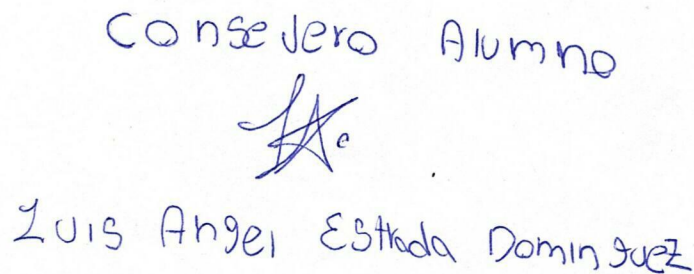 Consejero Alumno
Luis Angel Estrada Dominguez